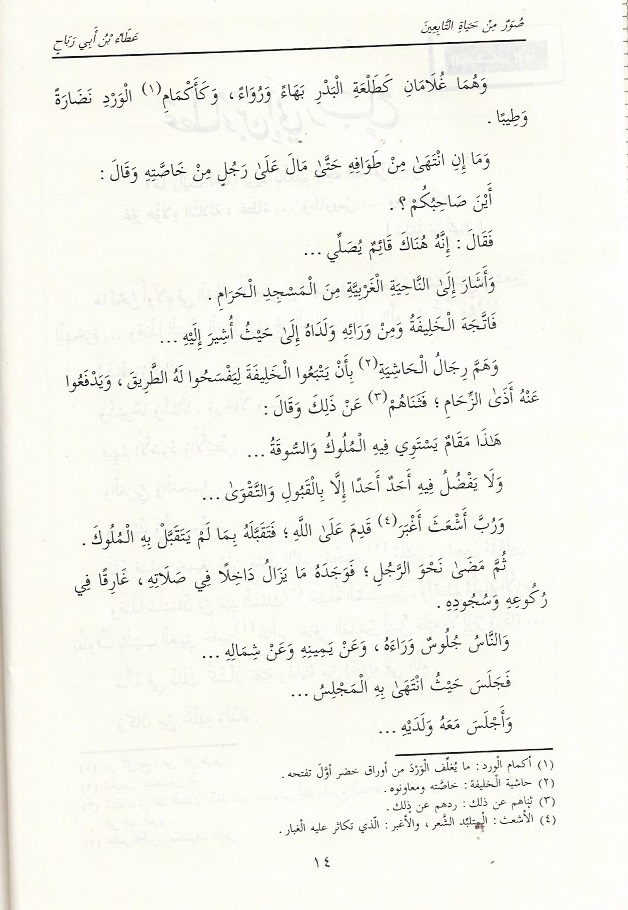 صُوَرٌ مِنْ حَيَاةِ التَّابِعِينَ
عَطَاءُ بْنُ أَبِي رَبَاحٍ
وَهُمَا غُلَامَانِ كَطَلْعَةِ الْبَدْرِ بَهَاءً وَرُوَاءً ، وَكَأَكْمَامِ(١) الْوَرْدِ نَضَارَةً
وَطِيبًا .
وَمَا إِنِ انْتَهَىٰ مِنْ طَوَافِهِ حَتَّىٰ مَالَ عَلَىٰ رَجُلٍ مِنْ خَاصَّتِهِ وَقَالَ :
أَيْنَ صَاحِبُكُمْ ؟ .
فَقَالَ : إِنَّهُ هُنَاكَ قَائِمٌ يُصَلِّي ...
وَأَشَارَ إِلَىٰ النَّاحِيَةِ الْغَرْبِيَّةِ مِنَ الْمَسْجِدِ الْحَرَامِ .
فَاتَّجَهَ الْخَلِيفَةُ وَمِنْ وَرَائِهِ وَلَدَاهُ إِلَىٰ حَيْثُ أُشِيرَ إِلَيْهِ ...
وَهَمَّ رِجَالُ الْحَاشِيَةِ(٢) بِأَنْ يَتْبَعُوا الْخَلِيفَةَ لِيَفْسَحُوا لَهُ الطَّرِيقَ ، وَيَدْفَعُوا
عَنْهُ أَذَىٰ الزِّحَامِ ؛ فَثَنَاهُمْ(٣) عَنْ ذَلِكَ وَقَالَ :
هَٰذَا مَقَامٌ يَسْتَوِي فِيهِ الْمُلُوكُ وَالسُّوقَةُ ...
وَلَا يَفْضُلُ فِيهِ أَحَدٌ أَحَدًا إِلَّا بِالْقَبُولِ وَالتَّقْوَىٰ ...
وَرُبَّ أَشْعَثَ أَغْبَرَ(٤) قَدِمَ عَلَىٰ اللَّهِ ؛ فَتَقَبَّلَهُ بِمَا لَمْ يَتَقَبَّلْ بِهِ الْمُلُوكَ .
ثُمَّ مَضَىٰ نَحْوَ الرَّجُلِ ؛ فَوَجَدَهُ مَا يَزَالُ دَاخِلًا فِي صَلَاتِهِ ، غَارِقًا فِي
رُكُوعِهِ وَسُجُودِهِ .
وَالنَّاسُ جُلُوسٌ وَرَاءَهُ ، وَعَنْ يَمِينِهِ وَعَنْ شِمَالِهِ ...
فَجَلَسَ حَيْثُ انْتَهَىٰ بِهِ الْمَجْلِسُ ...
وَأَجْلَسَ مَعَهُ وَلَدَيْهِ ...
(١) أكمام الورد : ما يُغلِّف الْوَرْدَ من أوراق خضر أوَّل تفتحه .
(٢) حاشية الخليفة : خاصَّته ومعاونوه .
(٣) ثناهم عن ذلك : ردهم عن ذلك .
(٤) الأشعث : المتلبِّد الشَّعر ، والأغبر : الَّذي تكاثر عليه الغبار .
١٤